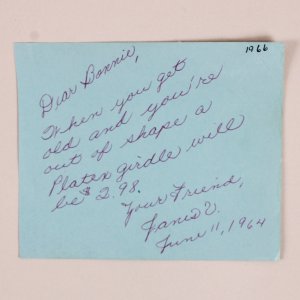 1966
Dear Bonnie,
When you get
old and you're
out of shape a
Platex girdle will
be $2.98.
Your Friend,
Janis V.
June 11, 1964